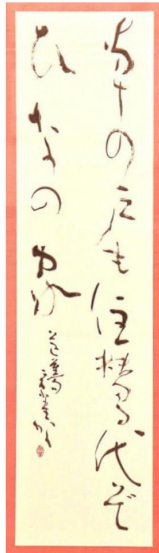 草の戸も住替る代ぞ
ひなの家
芭蕉